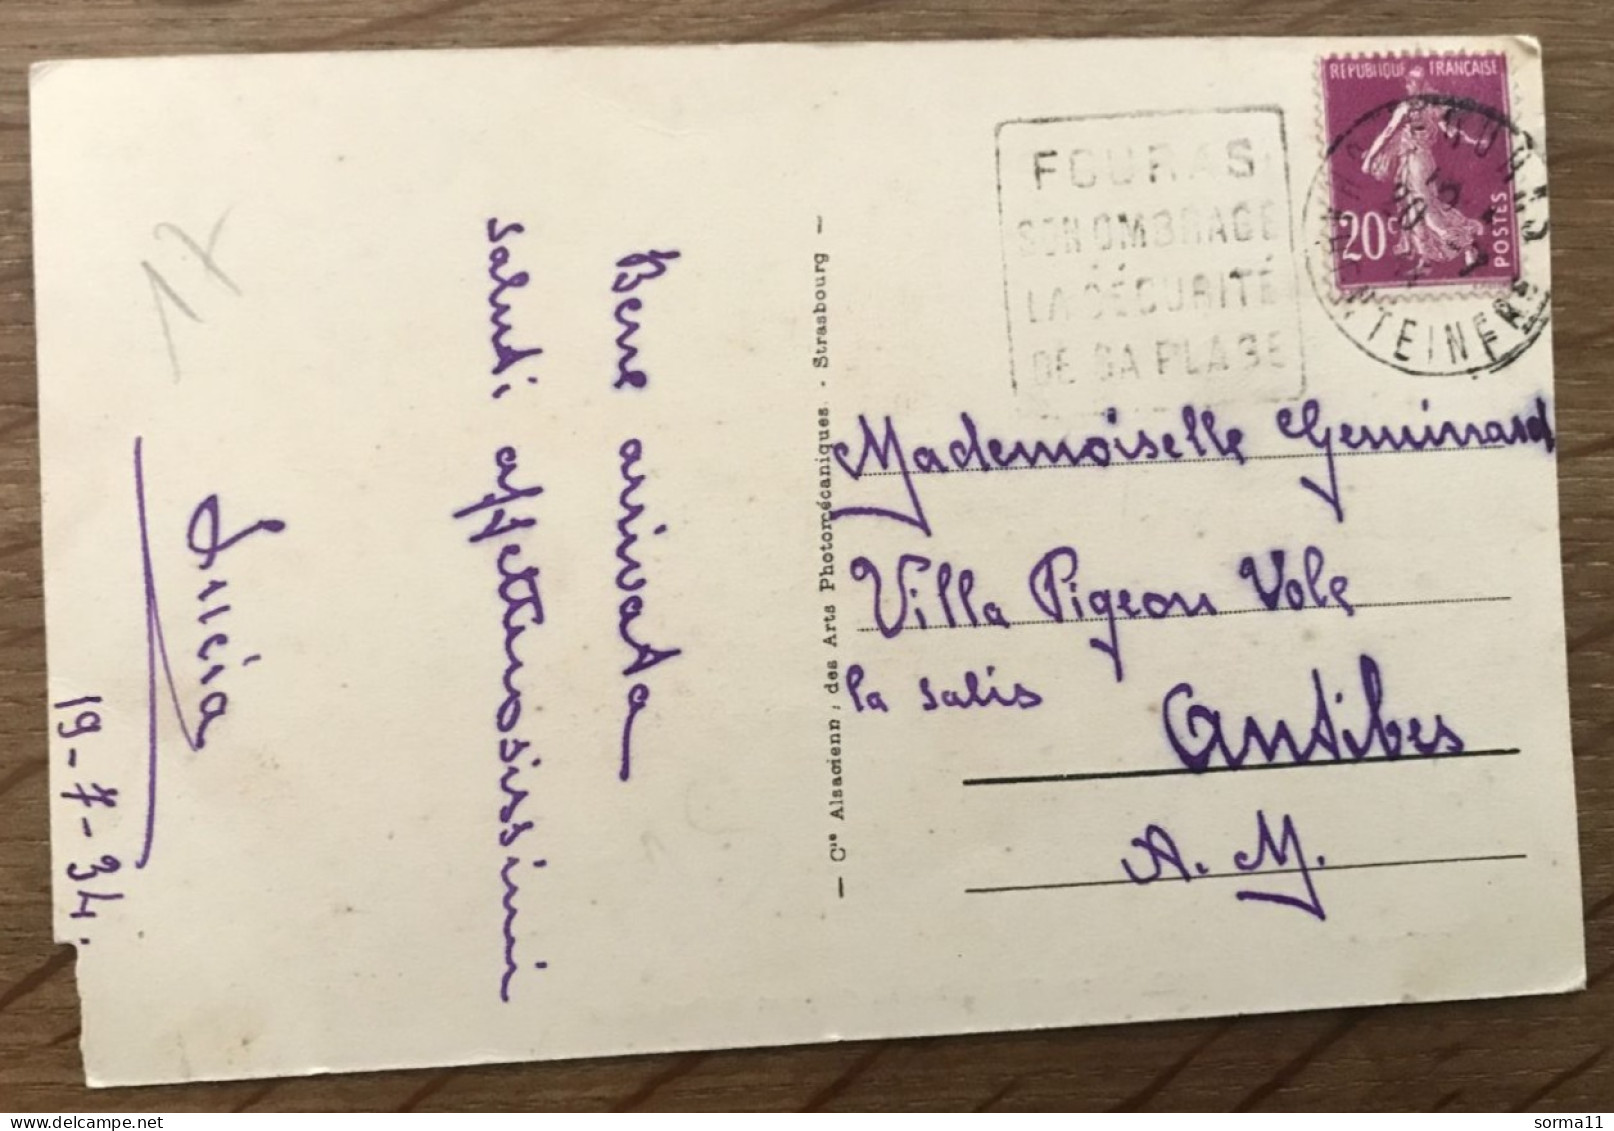 17
Bene arivata
saluti affettuosissimi
Lucia
19-7-34.
— Cie Alsacienn; des Arts Photomécaniques - Strasbourg —
FOURAS
SON OMBRAGE
LA SÉCURITÉ
DE SA PLAGE
REPUBLIQUE FRANÇAISE
20c
POSTES
Mademoiselle Geminard
Villa Pigeon Vole
la Salis
Antibes
A. M.
sorma11